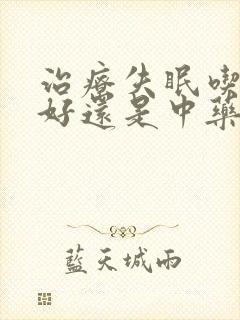 治療失眠喫
好還是中藥
藍天城雨